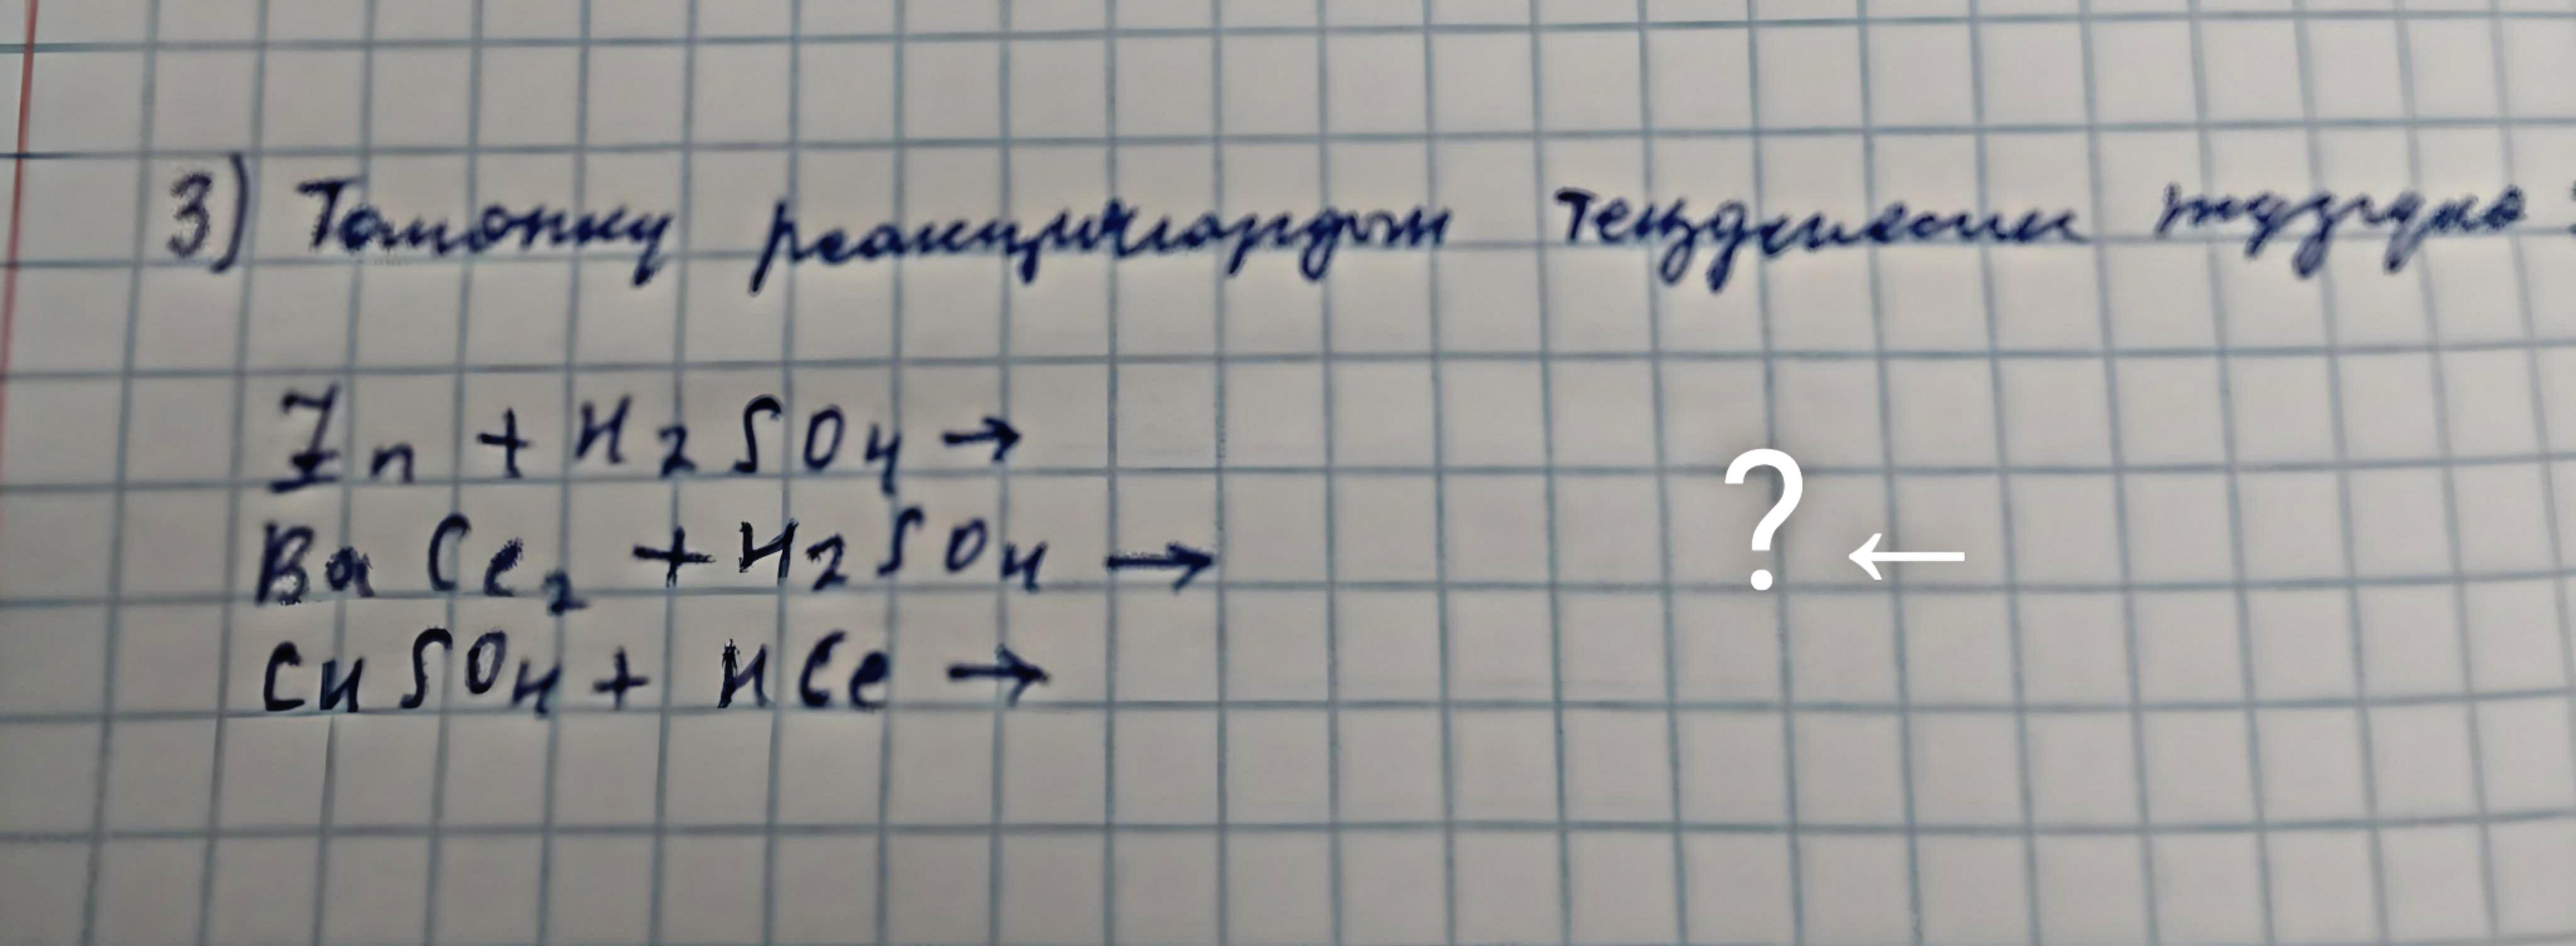 3) Томонку реакциялардын теңдемесин түзгүлө:
Zn + H2SO4 →
BaCl2 + H2SO4 →
? ←
CuSO4 + HCl →